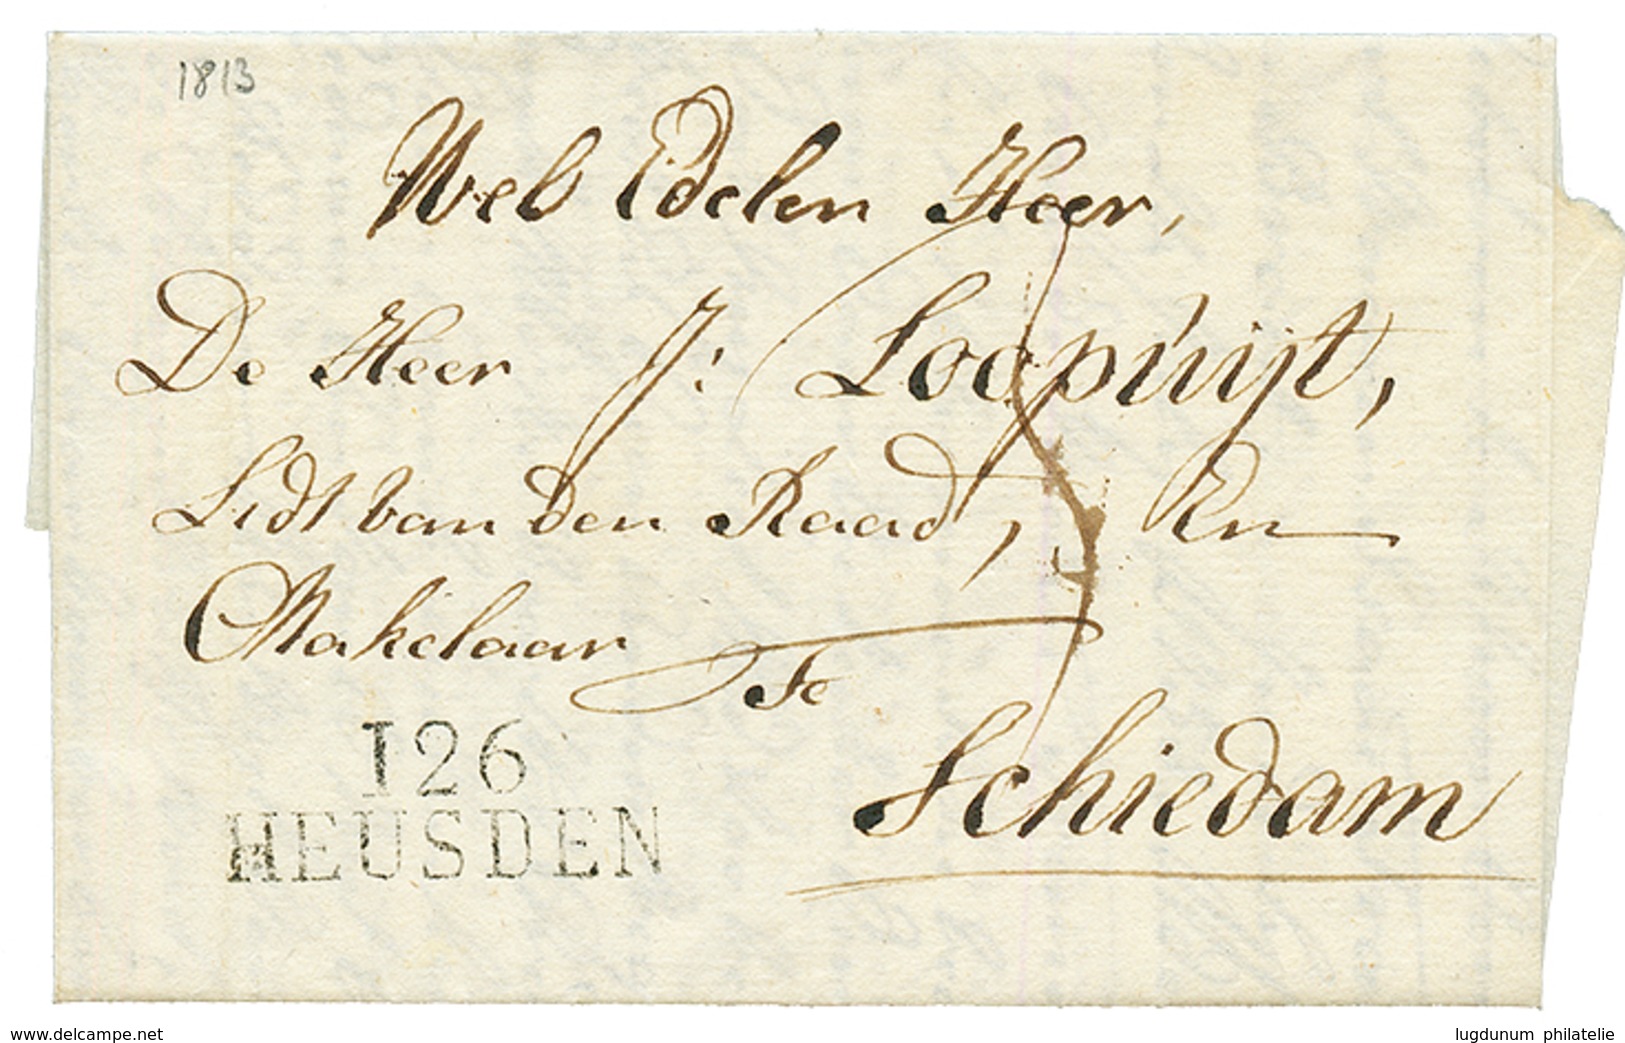 1813
Wel Edelen Heer,
De Heer J: Loopuijt,
Lidt van den Raad, En
Makelaar
Te
Schiedam
126
HEUSDEN
www.delcampe.net
lugdunum philatelie